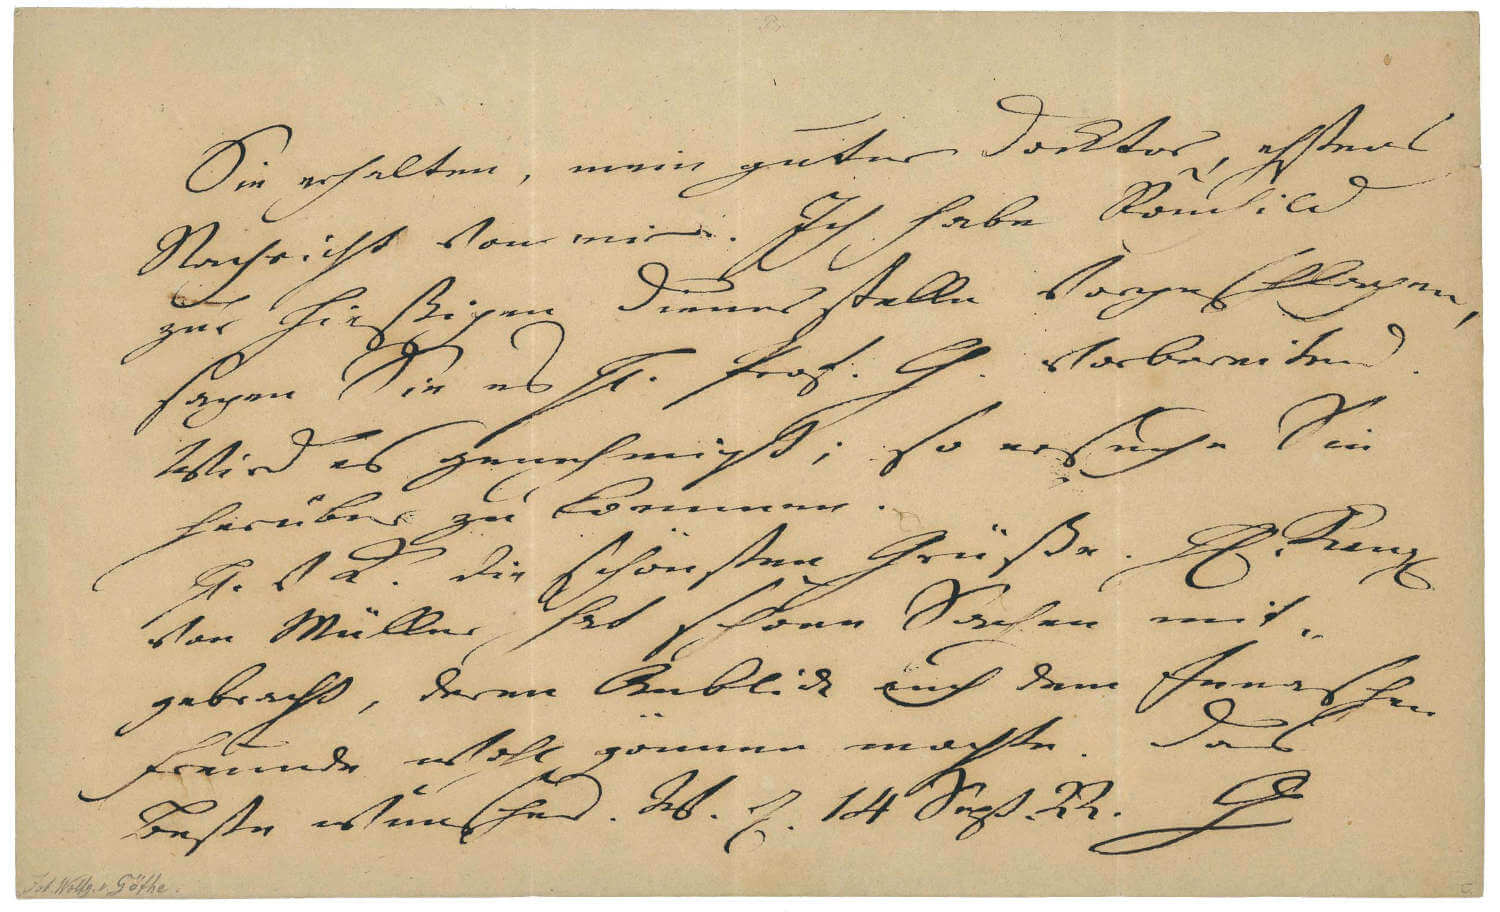 Sie erhalten, mein guter Docktor, ehstens
Nachricht von mir. Ich habe Römhild
zur hiesigen Dienerstelle vorgeschlagen,
sagen Sie es H. Prof. G. vorbereitend.
Wird es genehmigt; so ersuche Sie
herüber zu kommen.
H. v K. die schönsten Grüße. H. Kanz
von Müller hat schöne Sachen mit
gebracht, deren Anblick auch dem Jenaschen
Freunde wohl gönnen mochte. Das
Beste wünschend. W. d. 14 Sept. 22. G
Joh. Wolfg. v. Göthe.